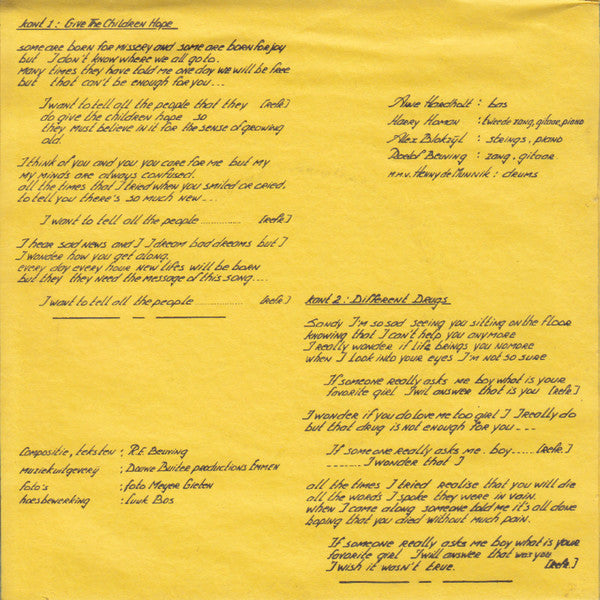 kant 1: Give The Children Hope
some are born for missery and some are born for joy
but I don't know where we all go to.
Many times they have told me one day we will be free
but that can't be enough for you...
I want to tell all the people that they [refr.]
do give the children hope so
they must believe in it for the sense of growing
old.
I think of you and you you care for me but my
my minds are always confused.
all the times that I tried when you smiled or cried,
to tell you there's so much new...
I want to tell all the people ............ [refr.]
I hear sad news and I I dream bad dreams but I
I wonder how you get along.
every day every hour new lifes will be born
but they they need the message of this song....
I want to tell all the people ............ [refr.]
Arne Hardholt : bas
Harry Homan : tweede zang, gitaar, piano
Alex Bloksÿl : strings, piano
Roelof Beuving : zang, gitaar
m.m.v. Henny de Munnik : drums
kant 2: Different Drugs
Sandy I'm so sad seeing you sitting on the floor
knowing that I can't help you anymore
I really wonder if life brings you nomore
when I look into your eyes I'm not so sure
If someone really asks me boy what is your
favorite girl I wil answer that is you [refr.]
I wonder if you do love me too girl I I really do
but that drug is not enough for you ---
If some one really asks me. boy...... [refr.]
........ I wonder that I
all the times I tried realise that you will die
all the words I spoke they were in vain.
when I came along someone told me it's all done
hoping that you died without much pain.
If someone really asks me boy what is your
favorite girl I will answer that was you
I wish it wasn't true. [refr.]
Compositie, teksten : R.F. Beuving
muziekuitgeverij : Douwe Buiter productions Emmen
foto's : foto Meyer Gieten
hoesbewerking : Luuk Bos